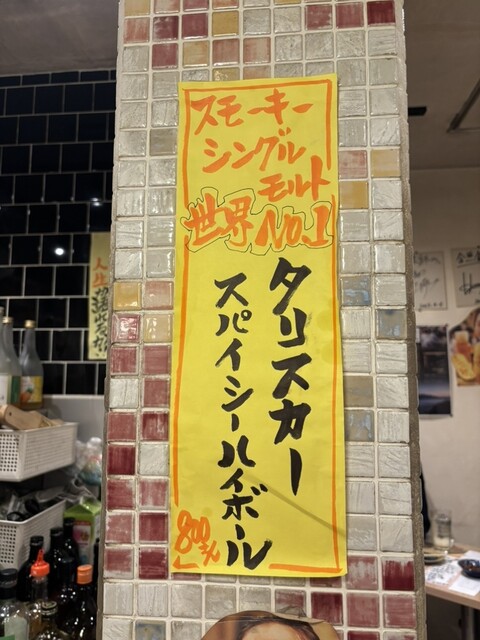 スモーキー
シングル
モルト
世界No.1
タリスカー
スパイシーハイボール
800えん